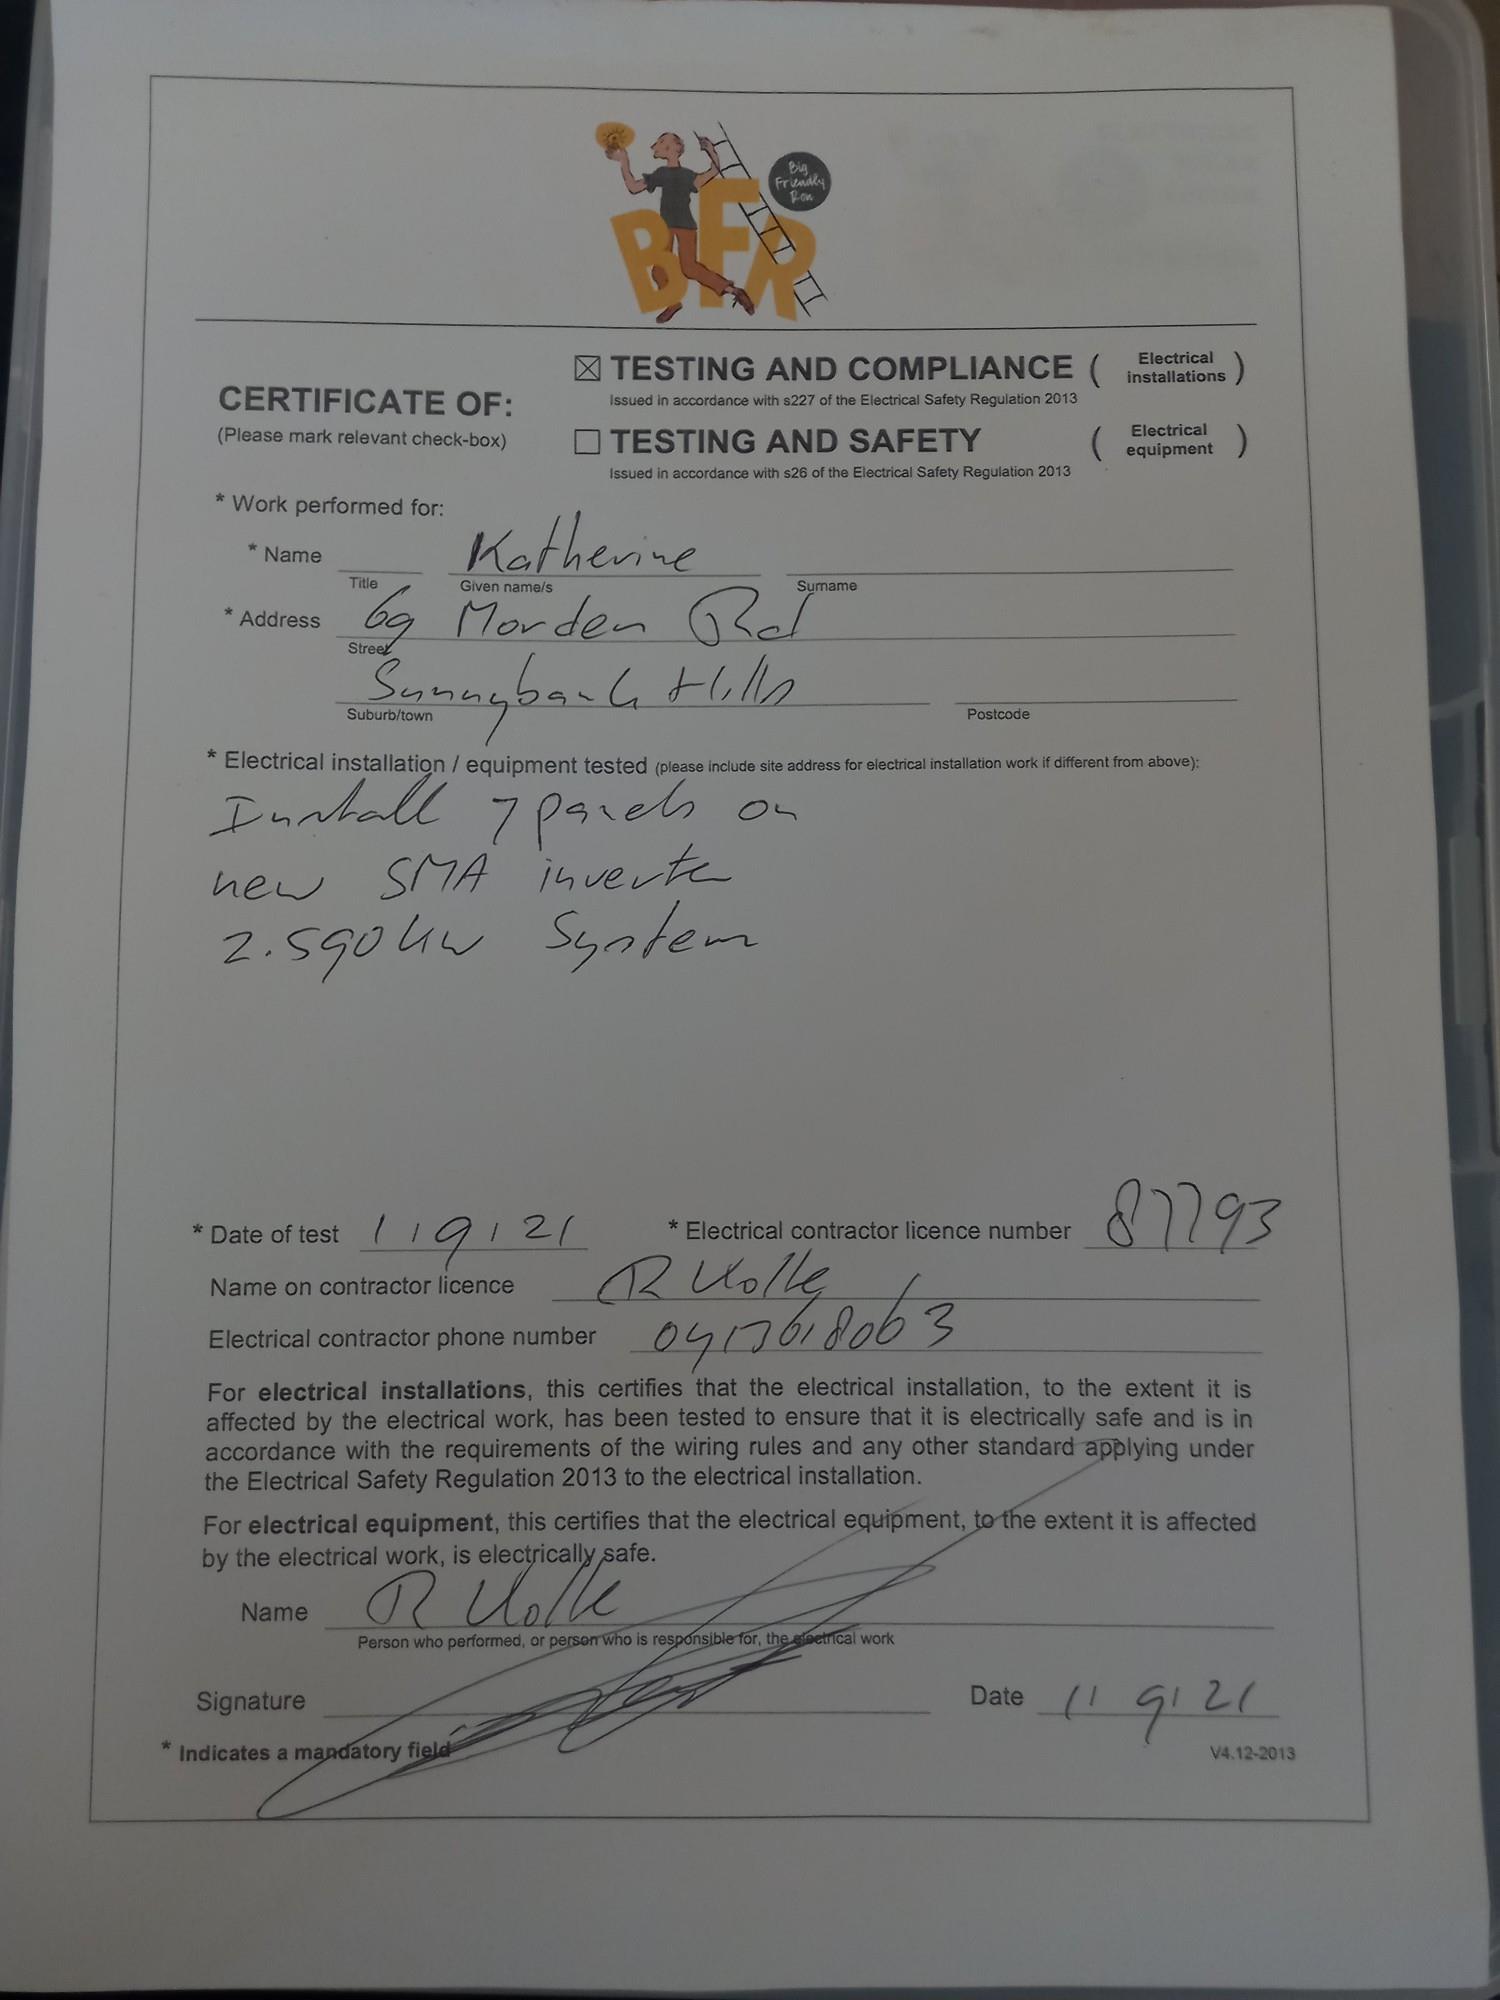 Big
Friendly
Ron
BFR
CERTIFICATE OF:
(Please mark relevant check-box)
☒ TESTING AND COMPLIANCE ( Electrical installations )
Issued in accordance with s227 of the Electrical Safety Regulation 2013
☐ TESTING AND SAFETY ( Electrical equipment )
Issued in accordance with s26 of the Electrical Safety Regulation 2013
* Work performed for:
* Name Katherine
Title Given name/s Surname
* Address 69 Morden Rd
Street
Sunnybank Hills
Suburb/town Postcode
* Electrical installation / equipment tested (please include site address for electrical installation work if different from above):
Install 7 panels on
new SMA inverter
2.590kw System
* Date of test 1/9/21 * Electrical contractor licence number 87793
Name on contractor licence R
Electrical contractor phone number 0417618063
For electrical installations, this certifies that the electrical installation, to the extent it is
affected by the electrical work, has been tested to ensure that it is electrically safe and is in
accordance with the requirements of the wiring rules and any other standard applying under
the Electrical Safety Regulation 2013 to the electrical installation.
For electrical equipment, this certifies that the electrical equipment, to the extent it is affected
by the electrical work, is electrically safe.
Name R
Person who performed, or person who is responsible for, the electrical work
Signature Date 1/9/21
* Indicates a mandatory field
V4.12-2013